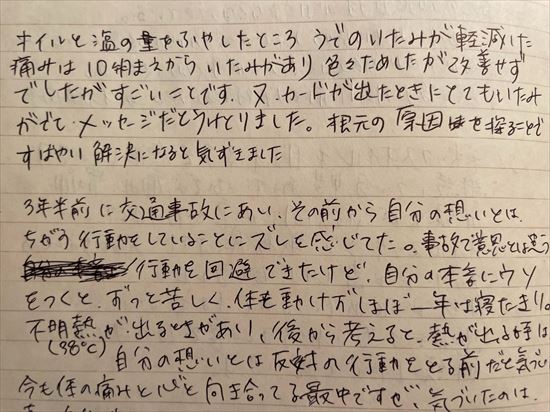 オイルと塩の量をふやしたところ うでのいたみが軽減した
痛みは10年前まえから いたみがあり 色々ためしたが改善せず
でしたがすごいことです。又、カードが出たときにとてもいたみ
がでて、メッセージだとうけとりました。根元の原因を探ることで
すばやい解決になると気ずきました
3年半前に交通事故にあい、その前から自分の想いとは
ちがう行動をしていることにズレを感じてた。事故で意思とは違う
行動を回避できたけど、自分の本音にウソ
をつくと、ずっと苦しく、体も動けずほぼ一年は寝たきり。
不明熱が出るときがあり、後から考えると、熱が出る時は
(38℃)
自分の想いとは反対の行動をとる前だと気づい
今も体の痛みと心と向き合ってる最中ですが、気づいたのは